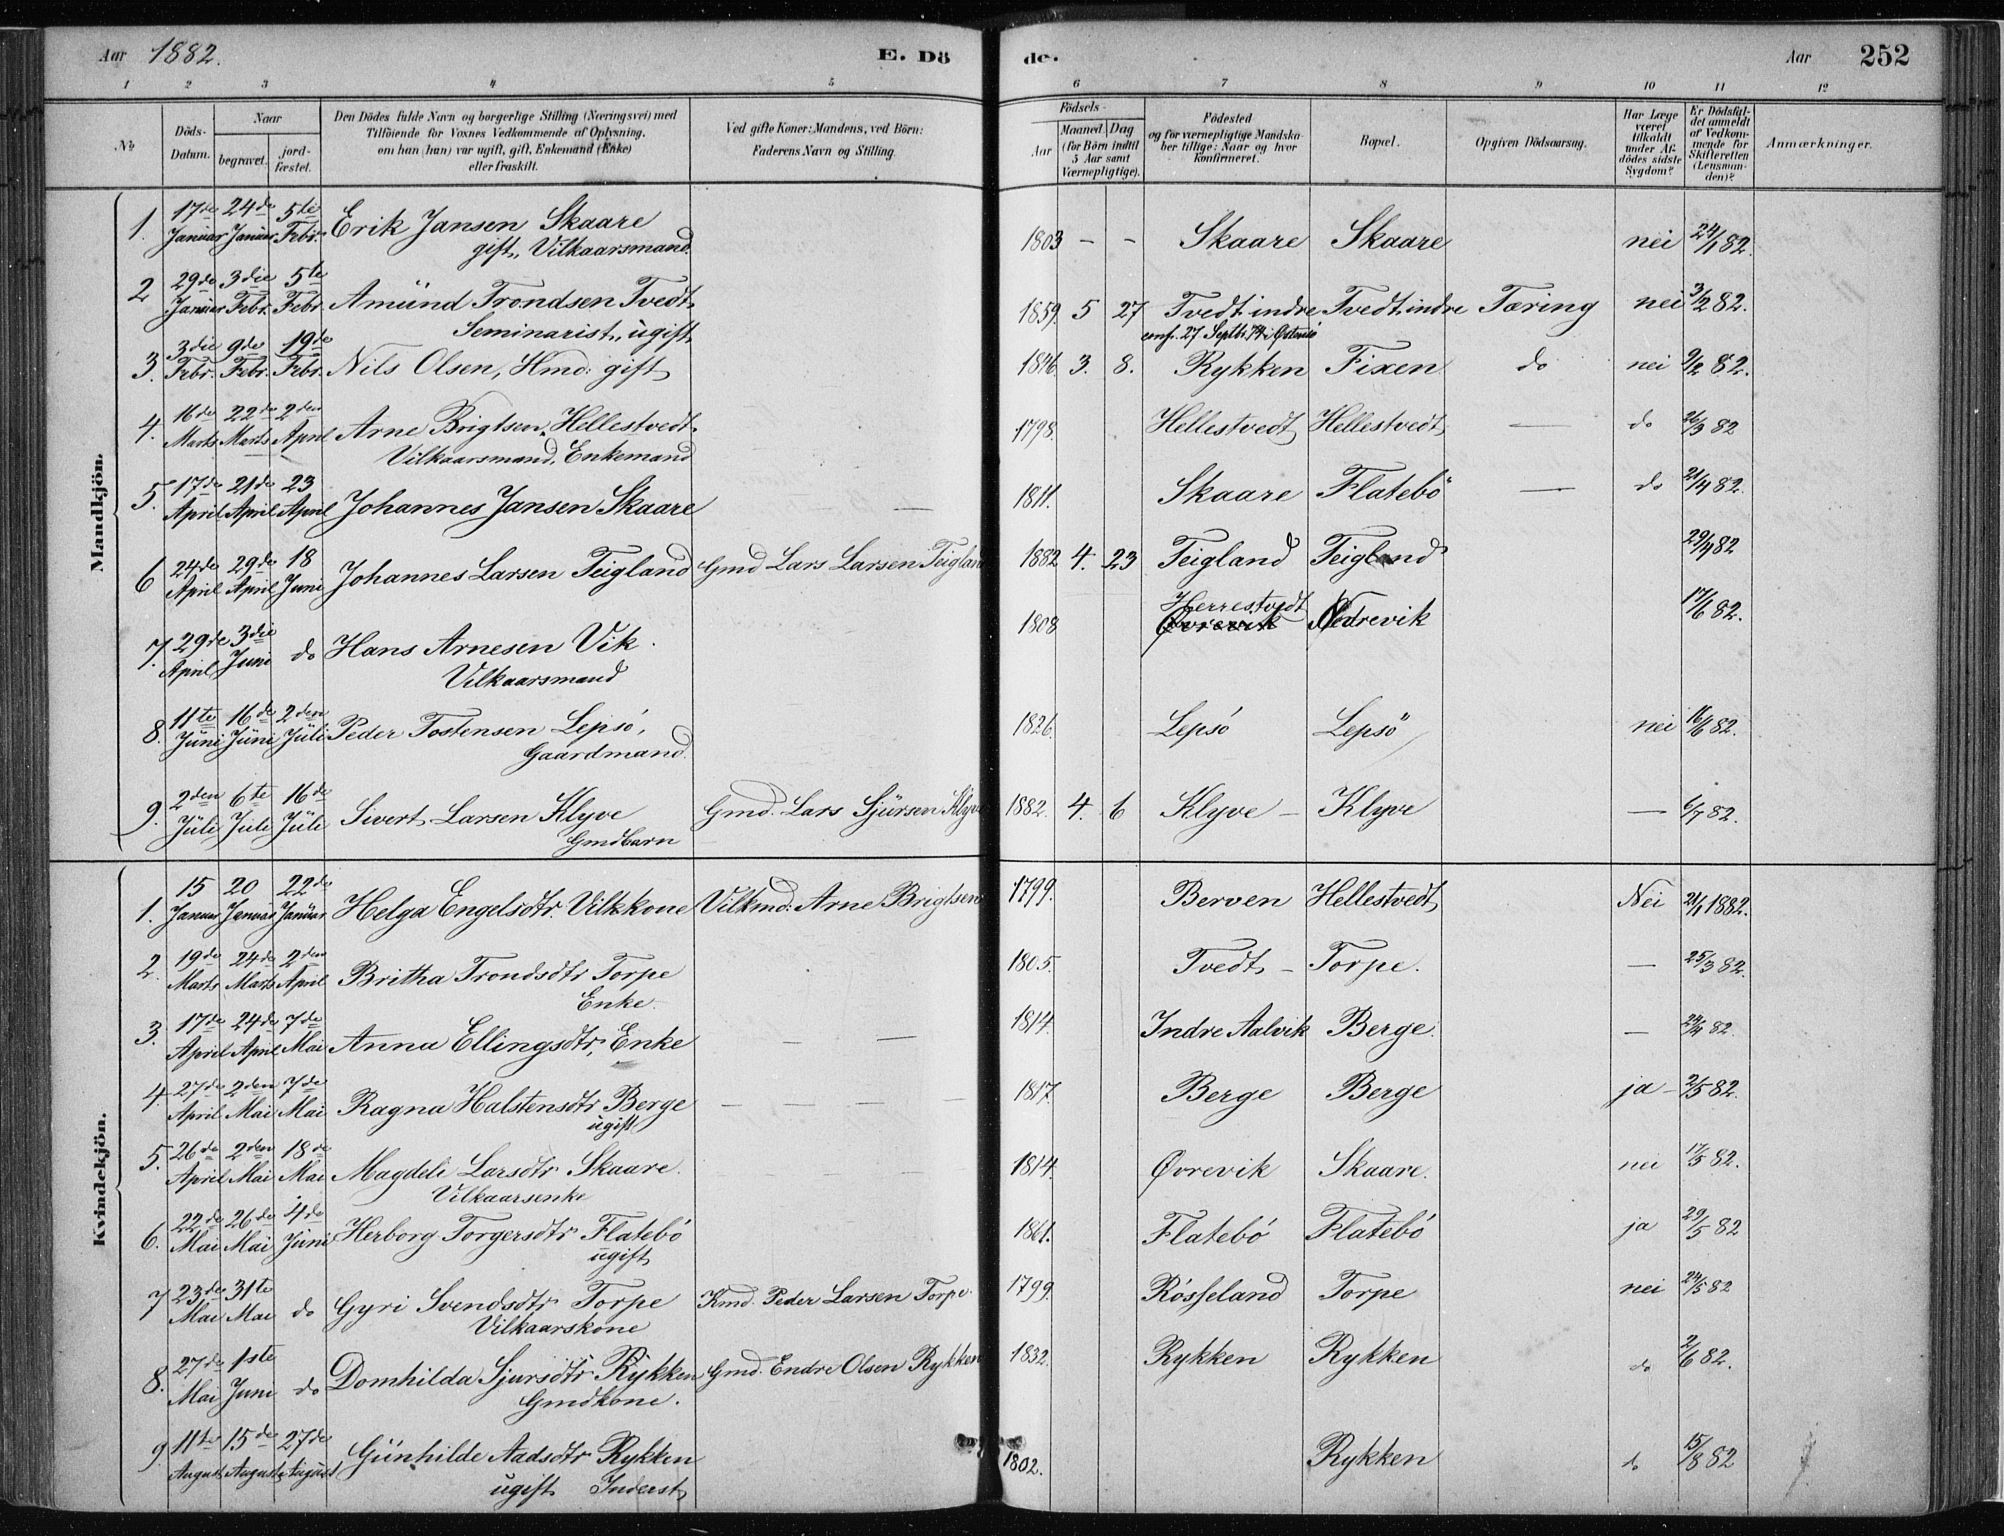 Aar 1882. E. Dö de. Aar 252
1 2 3 4 5 6 7 8 9 10 11 12
No
Döds-Datum.
Naar
begravet.
jord-fæstet.
Den Dödes fulde Navn og borgerlige Stilling (Næringsvei) med
Tilföiende for Voxnes Vedkommende af Oplysning,
om han (hun) var ugift, gift, Enkemand (Enke)
eller fraskilt.
Ved gifte Koner: Mandens, ved Börn:
Faderens Navn og Stilling.
Födsels-
Aar
Maaned Dag
(for Börn indtil
5 Aar samt
Værnepligtige).
Födested
og for værnepligtige Mandska-
ber tillige: Naar og hvor
Konfirmeret.
Bopæl.
Opgiven Dödsaarsag.
Har Læge
været
tilkaldt
under Af-
dödes sidste
Sygdom?
Er Dödsfal-
det anmeldt
af Vedkom-
mende for
Skifteretten
(Lensman-
den)?
Anmærkninger.
Mandkjön.
1. 17de Januar 24de Januar 5te Febr. Erik Jansen Skaare 1803 – – Skaare Skaare nei 24/1 82.
gift, Vilkaarsmand.
2 29de Januar 3die Febr. 5te Febr. Amünd Trondsen Tvedt 1859. 5 27 Tvedt indre Tvedt indre Tæring nei 3/2 82.
Seminarist, ugift conf. 27 Septbr 74 i Østensö
3. 3die Febr. 9de Febr. 19de Febr. Nils Olsen, Hmd. gift 1846. 3. 8. Rykken Fixen do nei 9/2 82.
4. 16de Marts 22de Marts 2den April Arne Brigtsen Hellestvedt 1798. Hellestvedt Hellestvedt — do 26/3 82
Vilkaarsmand, Enkemand
5. 17de April 21de April 23 April Johannes Jansen Skaare — 1811. Skaare Flatebö — do 21/4 82.
6 24de April 29de April 18 Juni Johannes Larsen Teigland Gmd Lars Larsen Teigland 1882 4. 23 Teigland Teigland 29/4 82
7. 29de April 3die Juni do Hans Arnesen Vik. 1808 Herrestvedt Øvrevik Nedrevik 17/6 82.
Vilkaarsmand
8. 11te Jüni 16de Jüni 2den Jüli Peder Tostensen Lepsö, 1826. Lepsö Lepsö nei 16/6 82.
Gaardmand.
9. 2den Jüli 6te Juli 16de Jüli Sivert Larsen Klyve Gmd. Lars Sjürsen Klyve 1882. 4. 6 Klyve – Klyve — 6/7 82.
Gmdbarn
Kvindekjön.
1. 15 Januar 20 Januar 22de Januar Helga Engelsdtr. Vilkkone Vilkmd: Arne Brigtsen 1799. Berven Hellestvedt Nei 21/1 1882.
2. 19de Marts 24de Marts 2den April Britha Trondsdtr Torpe 1805. Tvedt – Torpe. — 25/3 82.
Enke.
3. 17de April 24de April 7de Mai Anna Ellingsdtr, Enke — — 1814. Indre Aalvik Berge. — 24/4 82.
4. 27de April 2den Mai 7de Mai Ragna Halstensdtr Berge — — — — 1817. Berge Berge ja – 2/5 82.
ugift
5. 26de April 2den Mai 18de Mai Magdeli Larsdtr Skaare. 1814. Øvrevik Skaare. nei 17/5 82.
Vilkaarsenke
6. 22de Mai 26de Mai 4de Juni Herborg Torgersdtr Flatebö 1861. Flatebö Flatebö ja 29/5 82
ugift
7 23de Mai 31te Mai do Gyri Svendsdtr Torpe Kmd. Peder Larsen Torpe. 1799. Rösseland Torpe nei 24/5 82
Vilkaarskone
8. 27de Mai 1ste Juni do Domhilda Sjursdtr Rykken Gmd. Endre Olsen Rykken 1832. Rykken Rykken do 2/6 82.
Gmdkone.
9 11te August 15de August 27de August Günhilde Aadsdtr Rykken 1802. Rykken do 15/8 82
ugift Inderst